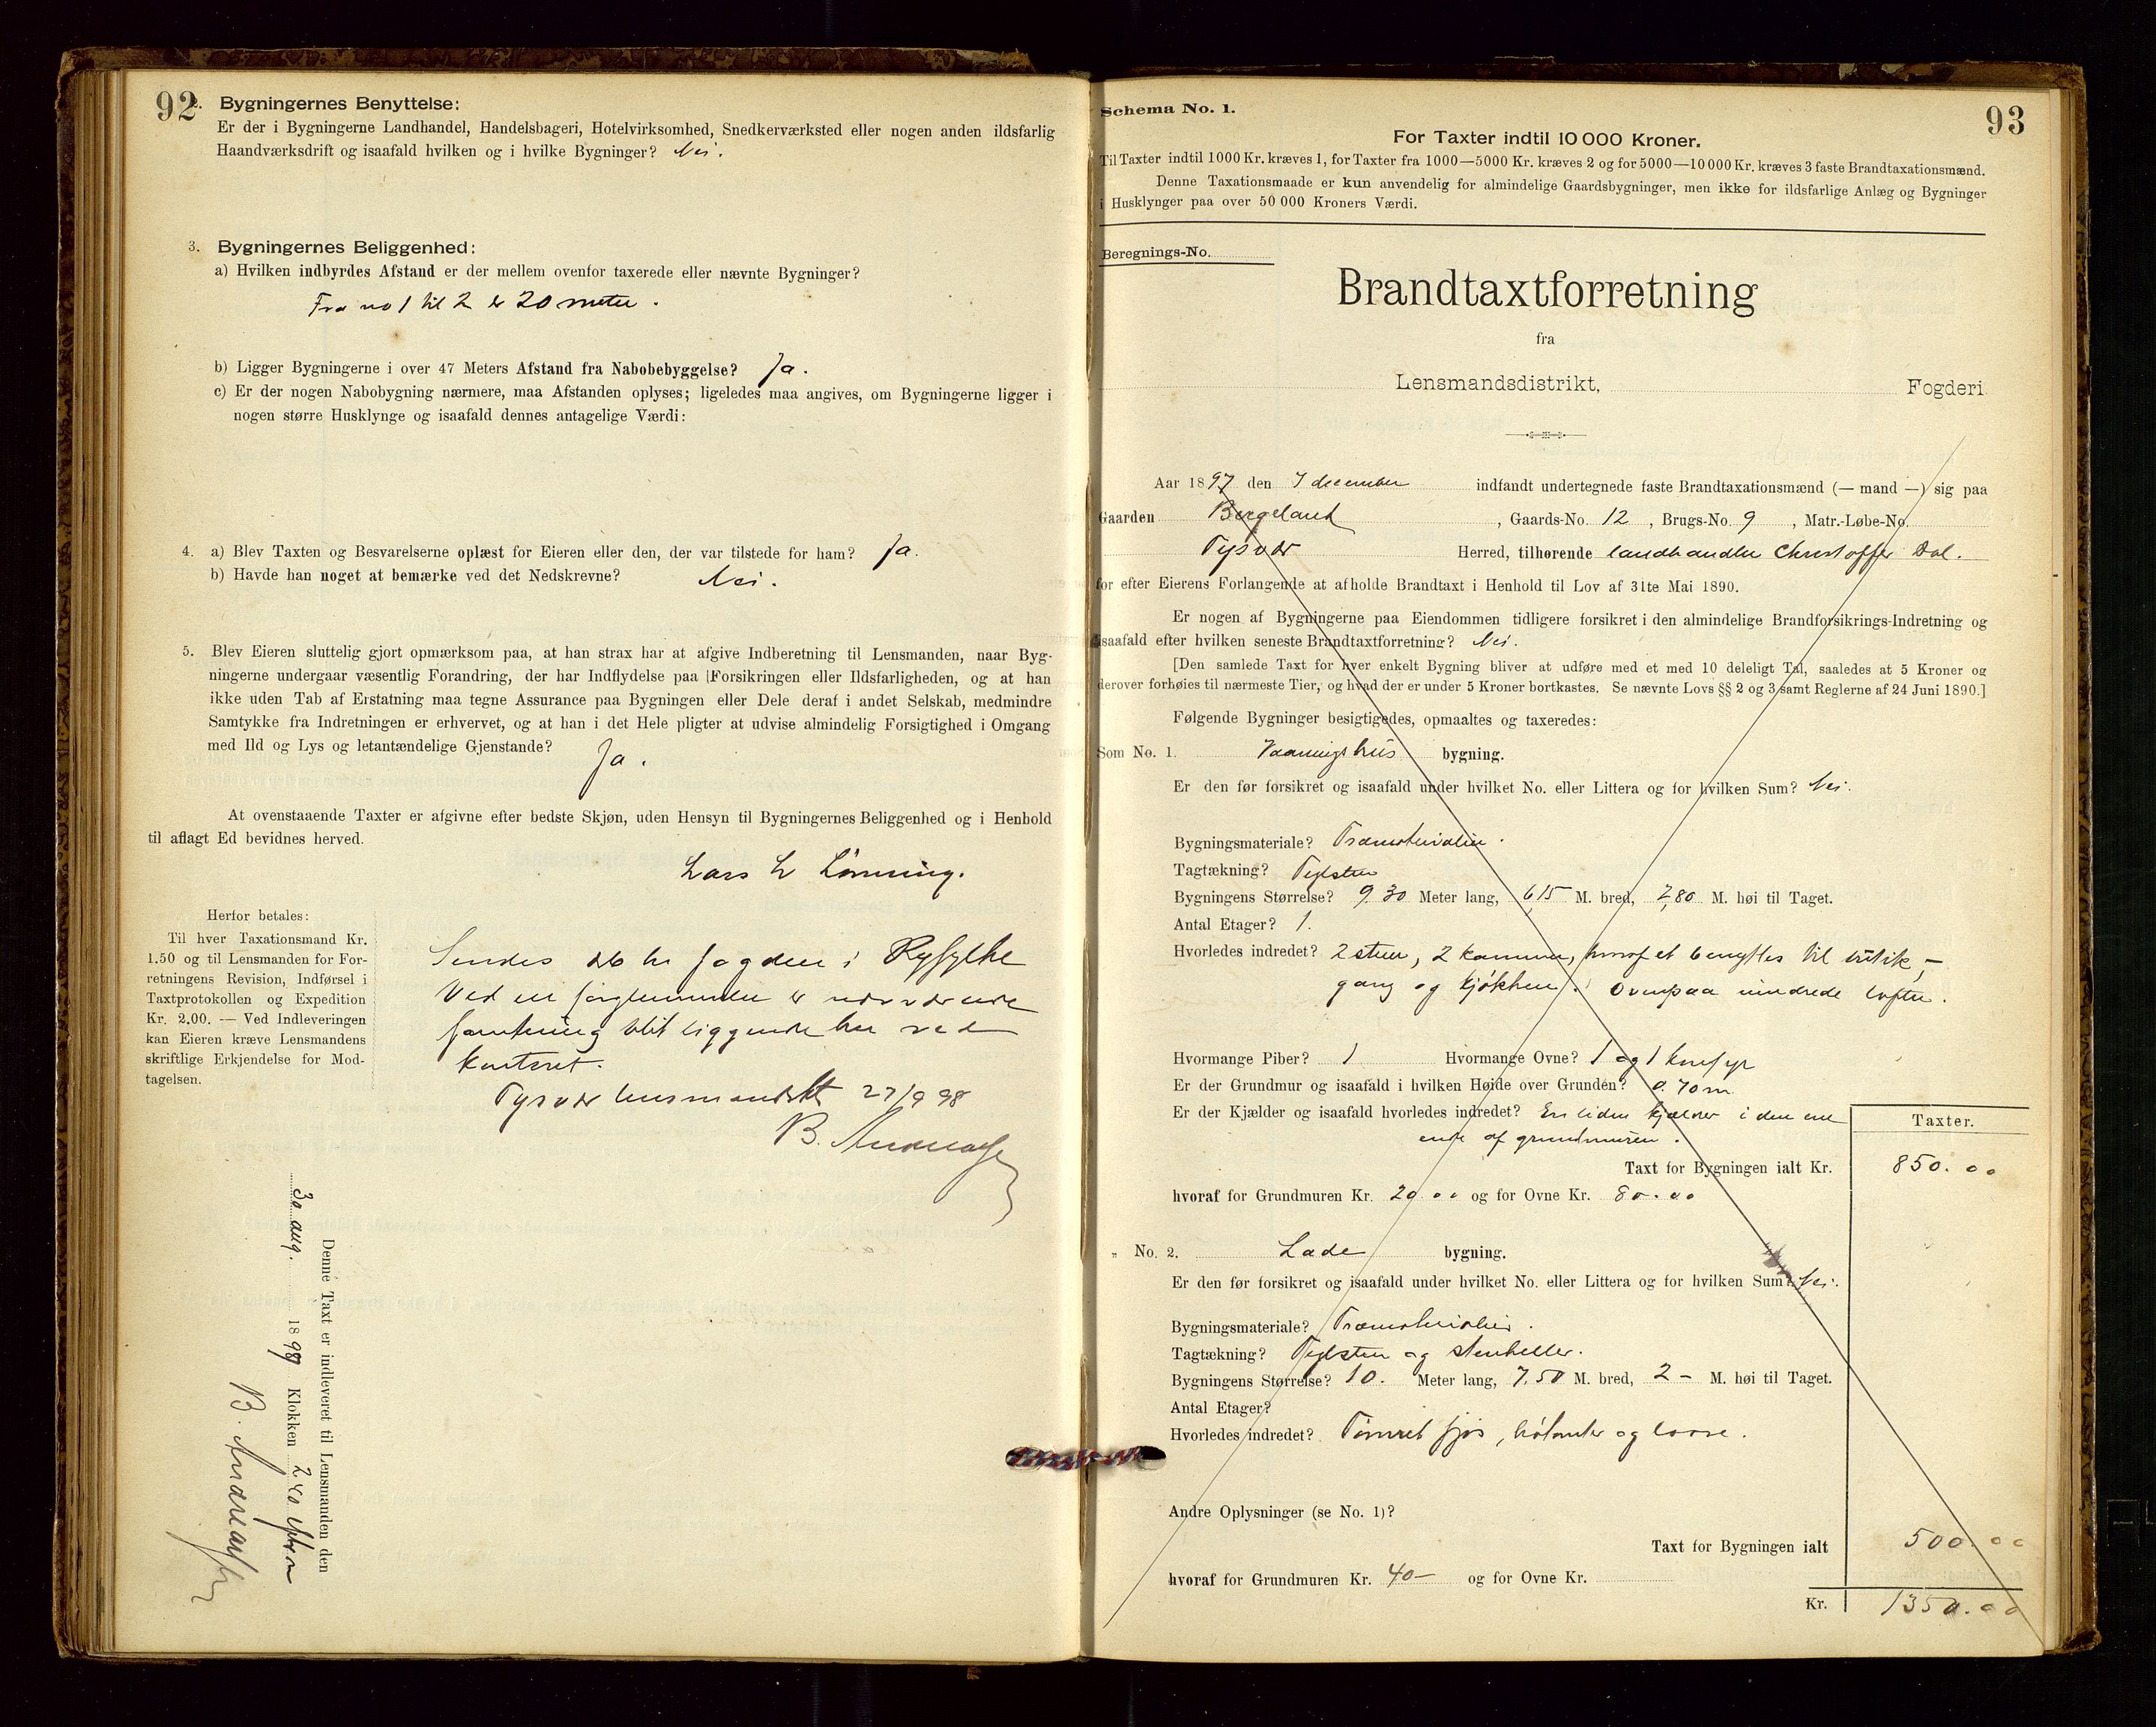 92
2. Bygningernes Benyttelse:
Er der i Bygningerne Landhandel, Handelsbageri, Hotelvirksomhed, Snedkerværksted eller nogen anden ildsfarlig
Haandværksdrift og isaafald hvilken og i hvilke Bygninger? Nei.
3. Bygningernes Beliggenhed:
a) Hvilken indbyrdes Afstand er der mellem ovenfor taxerede eller nævnte Bygninger?
Fra no 1 til 2 er 20 meter.
b) Ligger Bygningerne i over 47 Meters Afstand fra Nabobebyggelse? Ja.
c) Er der nogen Nabobygning nærmere, maa Afstanden oplyses; ligeledes maa angives, om Bygningerne ligger i
nogen større Husklynge og isaafald dennes antagelige Værdi:
4. a) Blev Taxten og Besvarelserne oplæst for Eieren eller den, der var tilstede for ham? Ja.
b) Havde han noget at bemærke ved det Nedskrevne? Nei.
5. Blev Eieren sluttelig gjort opmærksom paa, at han strax har at afgive Indberetning til Lensmanden, naar Byg-
ningerne undergaar væsentlig Forandring, der har Indflydelse paa Forsikringen eller Ildsfarligheden, og at han
ikke uden Tab af Erstatning maa tegne Assurance paa Bygningen eller Dele deraf i andet Selskab, medmindre
Samtykke fra Indretningen er erhvervet, og at han i det Hele pligter at udvise almindelig Forsigtighed i Omgang
med Ild og Lys og letantændelige Gjenstande? Ja.
At ovenstaaende Taxter er afgivne efter bedste Skjøn, uden Hensyn til Bygningernes Beliggenhed og i Henhold
til aflagt Ed bevidnes herved.
Lars L Lønning.
Herfor betales:
Til hver Taxationsmand Kr.
1.50 og til Lensmanden for For-
retningens Revision, Indførsel i
Taxtprotokollen og Expedition
Kr. 2.00. — Ved Indleveringen
kan Eieren kræve Lensmandens
skriftlige Erkjendelse for Mod-
tagelsen.
Sendes hr fogden i Ryfylke
Ved en forglemmelse er nærværende
forretning blit liggende her ved
kontoret.
Tysvær 27/9 98
B. Andreassen
Denne Taxt er indleveret til Lensmanden den
30 aug. 1898 Klokken 2 40
B. Andreassen
93
Schema No. 1.
For Taxter indtil 10 000 Kroner.
Til Taxter indtil 1000 Kr. kræves 1, for Taxter fra 1000—5000 Kr. kræves 2 og for 5000—10 000 Kr. kræves 3 faste Brandtaxationsmænd.
Denne Taxationsmaade er kun anvendelig for almindelige Gaardsbygninger, men ikke for ildsfarlige Anlæg og Bygninger
i Husklynger paa over 50 000 Kroners Værdi.
Beregnings-No.
Brandtaxtforretning
fra
Lensmandsdistrikt, Fogderi
Aar 1897 den 7 december indfandt undertegnede faste Brandtaxationsmænd (— mand —) sig paa
Gaarden Bergeland, Gaards-No. 12, Brugs-No. 9, Matr.-Løbe-No.
Tysvær Herred, tilhørende landhandler Christoffer Dal.
for efter Eierens Forlangende at afholde Brandtaxt i Henhold til Lov af 31te Mai 1890.
Er nogen af Bygningerne paa Eiendommen tidligere forsikret i den almindelige Brandforsikrings-Indretning og
isaafald efter hvilken seneste Brandtaxtforretning? Nei.
[Den samlede Taxt for hver enkelt Bygning bliver at udføre med et med 10 deleligt Tal, saaledes at 5 Kroner og
derover forhøies til nærmeste Tier, og hvad der er under 5 Kroner bortkastes. Se nævnte Lovs §§ 2 og 3 samt Reglerne af 24 Juni 1890.]
Følgende Bygninger besigtigedes, opmaaltes og taxeredes:
Som No. 1. Vaaningshus bygning.
Er den før forsikret og isaafald under hvilket No. eller Littera og for hvilken Sum? Nei.
Bygningsmateriale? Træmaterialier.
Tagtækning? Teglsten
Bygningens Størrelse? 9.30 Meter lang, 6,15 M. bred, 2,80 M. høi til Taget.
Antal Etager? 1.
Hvorledes indredet? 2 stuer, 2 kammer, hvoraf et benyttes til butik, –
gang og kjøkken. Ovenpaa uindrede lofter.
Hvormange Piber? 1 Hvormange Ovne? 1 og 1 komfyr
Er der Grundmur og isaafald i hvilken Høide over Grunden? 0.70 m
Er der Kjælder og isaafald hvorledes indredet? En liden kjælder i den ene
ende af grundmuren.
Taxter.
Taxt for Bygningen ialt Kr. 850.00
hvoraf for Grundmuren Kr. 20.00 og for Ovne Kr. 80.00
„ No. 2. Lade bygning.
Er den før forsikret og isaafald under hvilket No. eller Littera og for hvilken Sum? Nei.
Bygningsmateriale? Træmaterialier.
Tagtækning? Teglsten og stenheller.
Bygningens Størrelse? 10. Meter lang, 7.50 M. bred, 2 – M. høi til Taget.
Antal Etager?
Hvorledes indredet? Tømret fjøs, og loove.
Andre Oplysninger (se No. 1)?
Taxt for Bygningen ialt 500.00
hvoraf for Grundmuren Kr. 40– og for Ovne Kr.
Kr. 1350.00